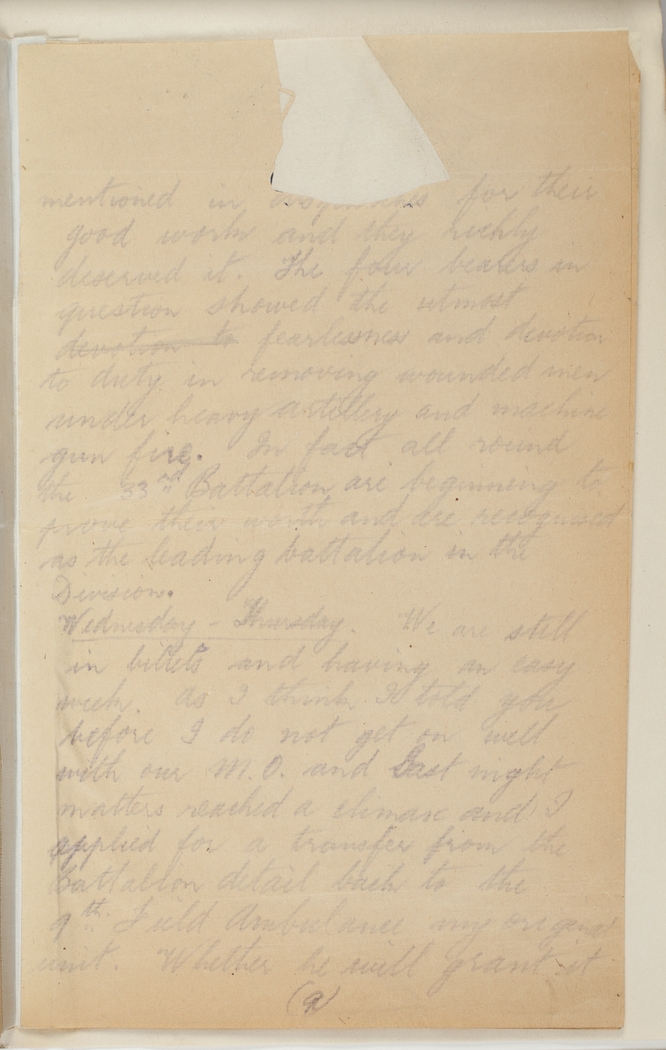 mentioned in dispatches for their
good work and they richly
deserved it. The four bearers in
question showed the utmost
devotion to fearlessness and devotion
to duty in removing wounded men
under heavy artillery and machine
gun fire. In fact all round
the 33rd Battalion are beginning to
prove their worth and are recognised
as the leading battalion in the
Division.
Wednesday - Thursday. We are still
in billets and having an easy
week. As I think I told you
before I do not get on well
with our M.O. and last night
matters reached a climax and I
applied for a transfer from the
Battalion detail back to the
9th. Field Ambulance my original
unit. Whether he will grant it
(9)